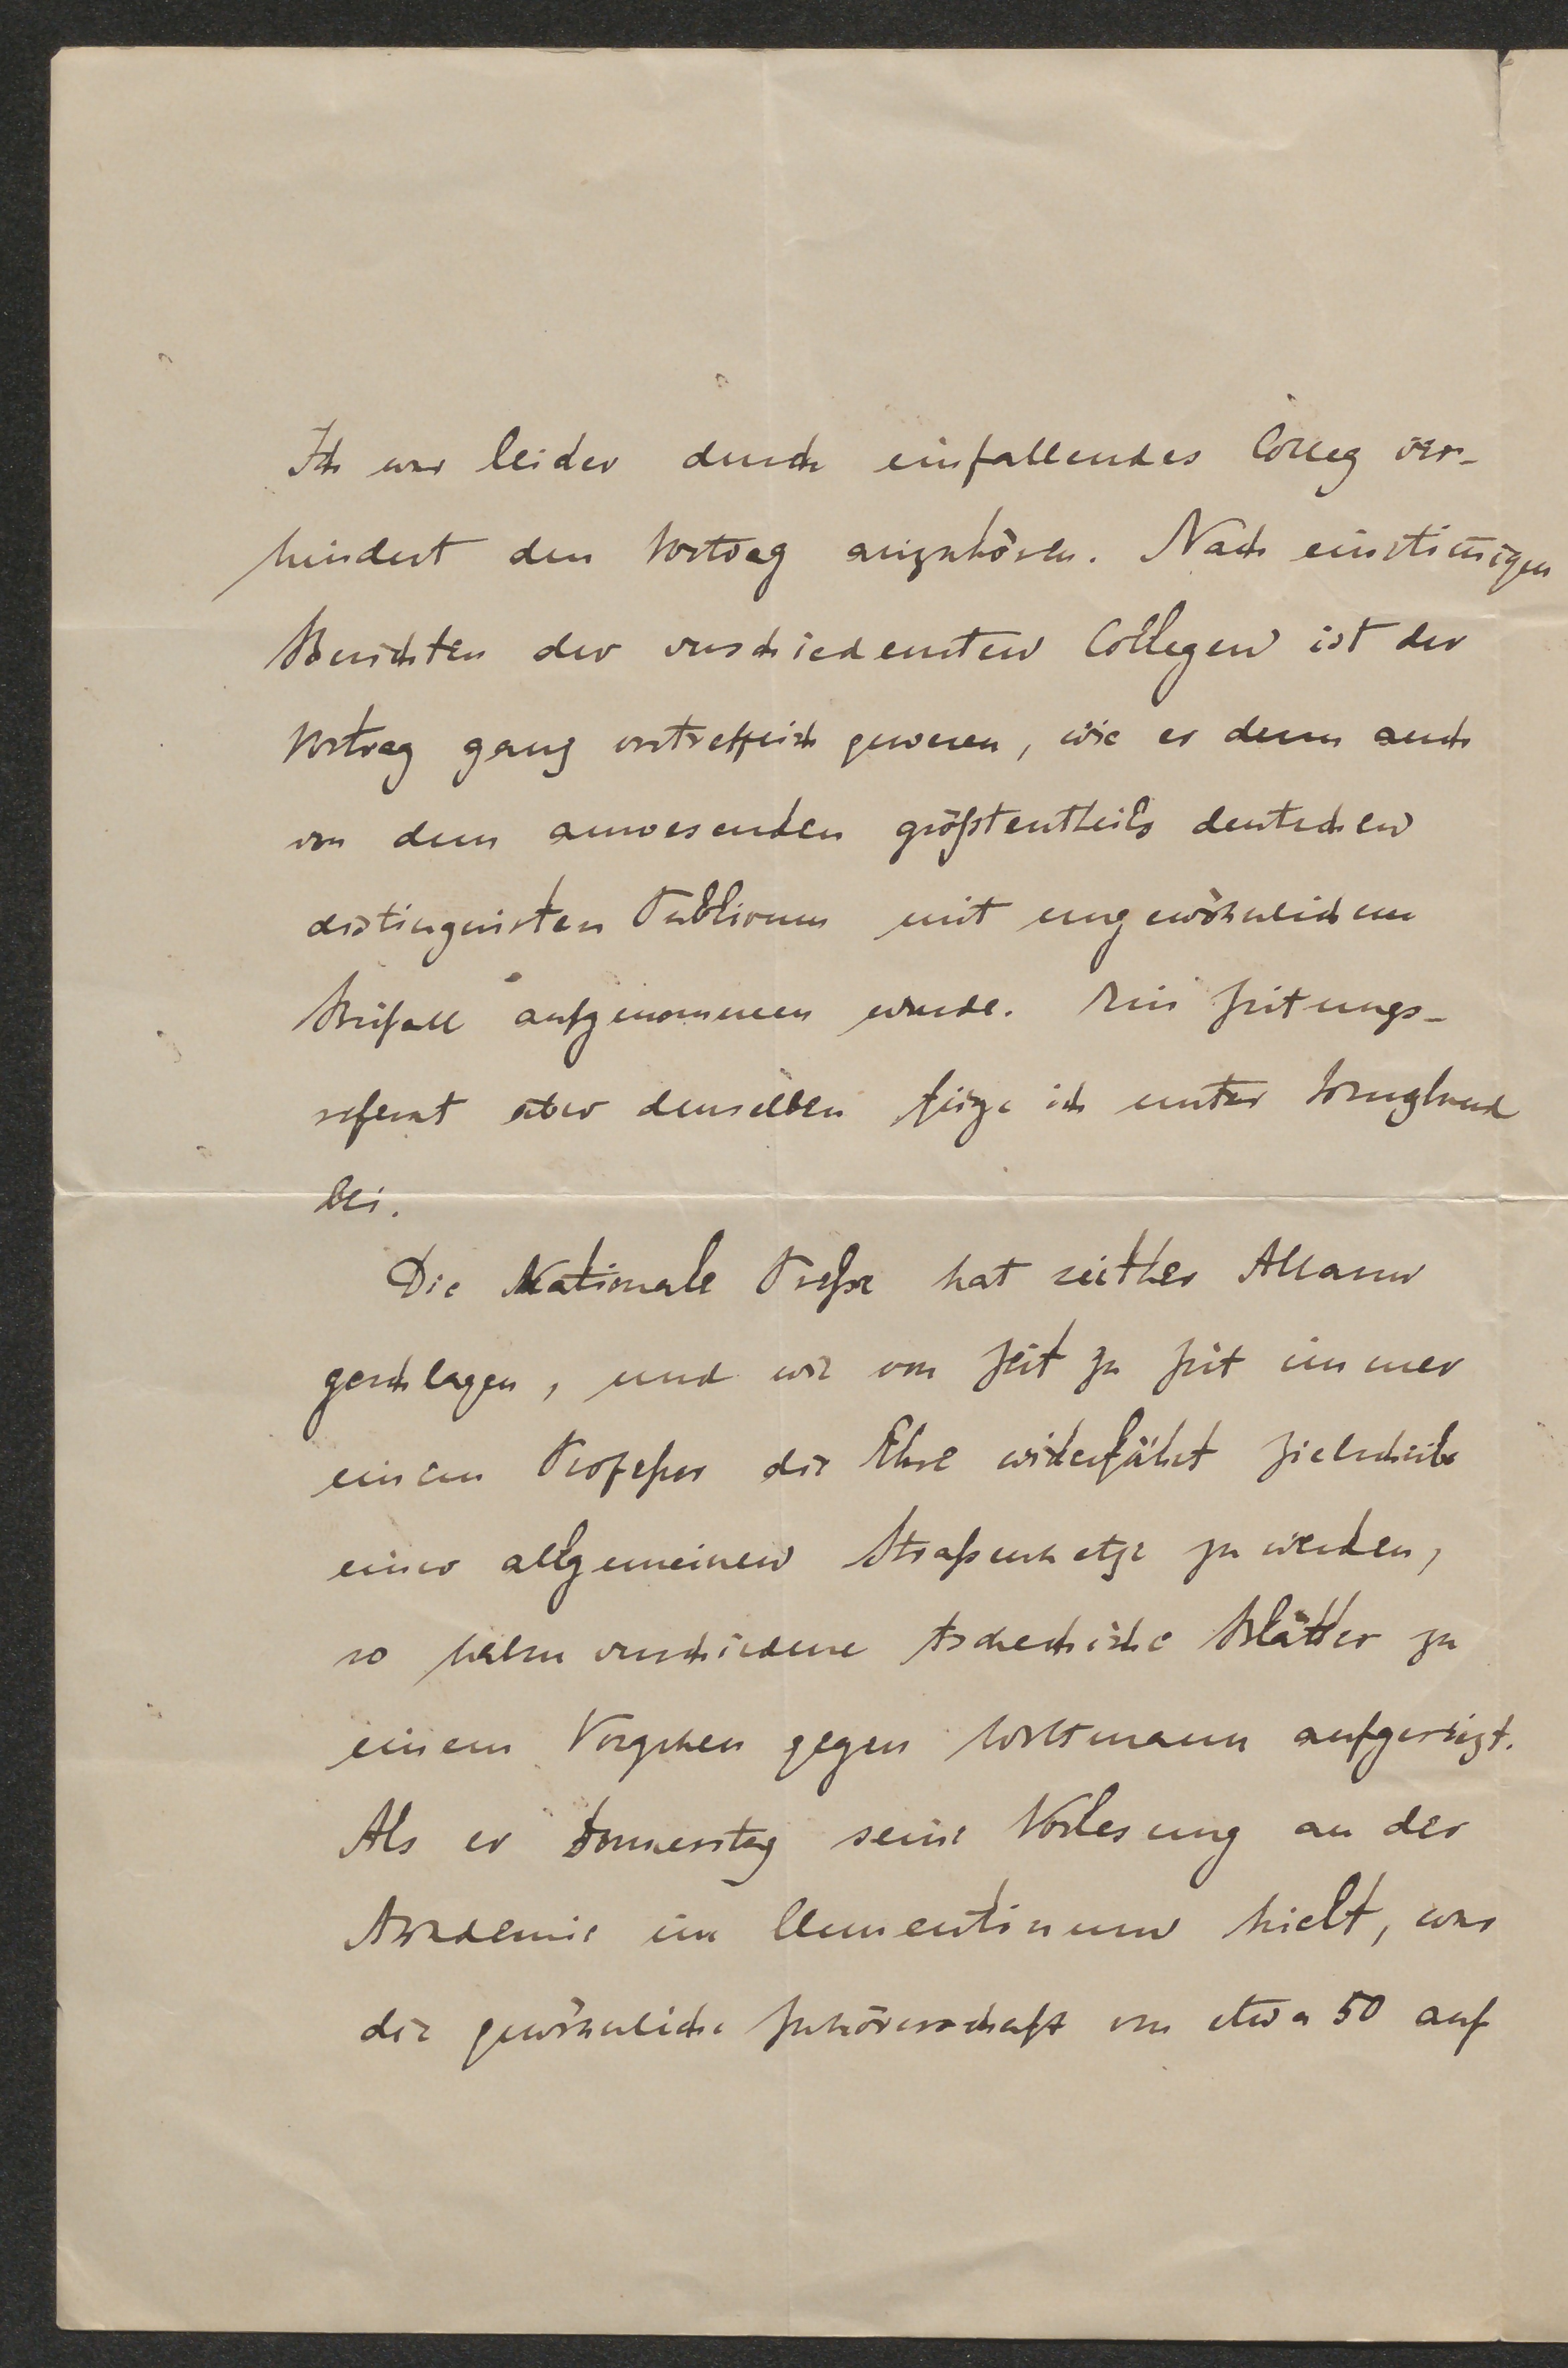 Ich war leider durch einfallendes Colleg ver-
hindert den Vortrag anzuhören. Nach einstim̅igen
Berichten der verschiedensten Collegen ist der
Vortrag ganz vortrefflich gewesen, wie er denn auch
von dem anwesenden größtentheils deutschen
distinguirten Publicum mit ungewöhnlichem
Beifall aufgenommen wurde. Ein Zeitungs-
referat über denselben füge ich unter Kreuzband
bei.
Die Nationale Preße hat seither Allarm
geschlagen, und wie von Zeit zu Zeit immer
einem Profeßor die Ehre widerfährt Zielscheibe
einer allgemeinen Straßenhetze zu werden,
so haben verschiedene tschechische Blätter zu
einem Vorgehen gegen Woltmann aufgereizt.
Als er Donnerstag seine Vorlesung an der
Akademie im Clementinum hielt, war
die gewöhnliche Zuhörerschaft von etwa 50 auf